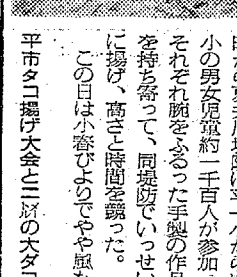 小の男女児童約一千百人が参加
それぞれ腕をふるった手製の作品
を持ち寄って、同堤防でいっせい
に揚げ、高さと時間を競った。
この日は小春びよりでやや風
平市タコ揚げ大会と二
の大ダコ